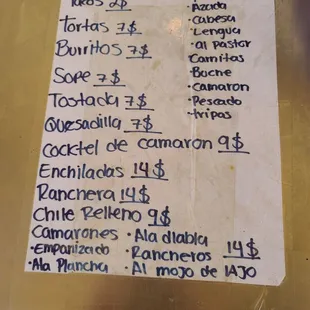 Tacos 2$
Tortas 7$
Burritos 7$
Sope 7$
Tostada 7$
Quesadilla 7$
Cocktel de camaron 9$
Enchiladas 14$
Ranchera 14$
Chile Relleno 9$
Camarones • Ala diabla
• Empanizado • Rancheros 14$
• Ala Plancha • Al mojo de IAJO
• Azada
• Cabesa
• Lengua
• al pastor
• Carnitas
• Buche
• Camaron
• Pescado
• tripas